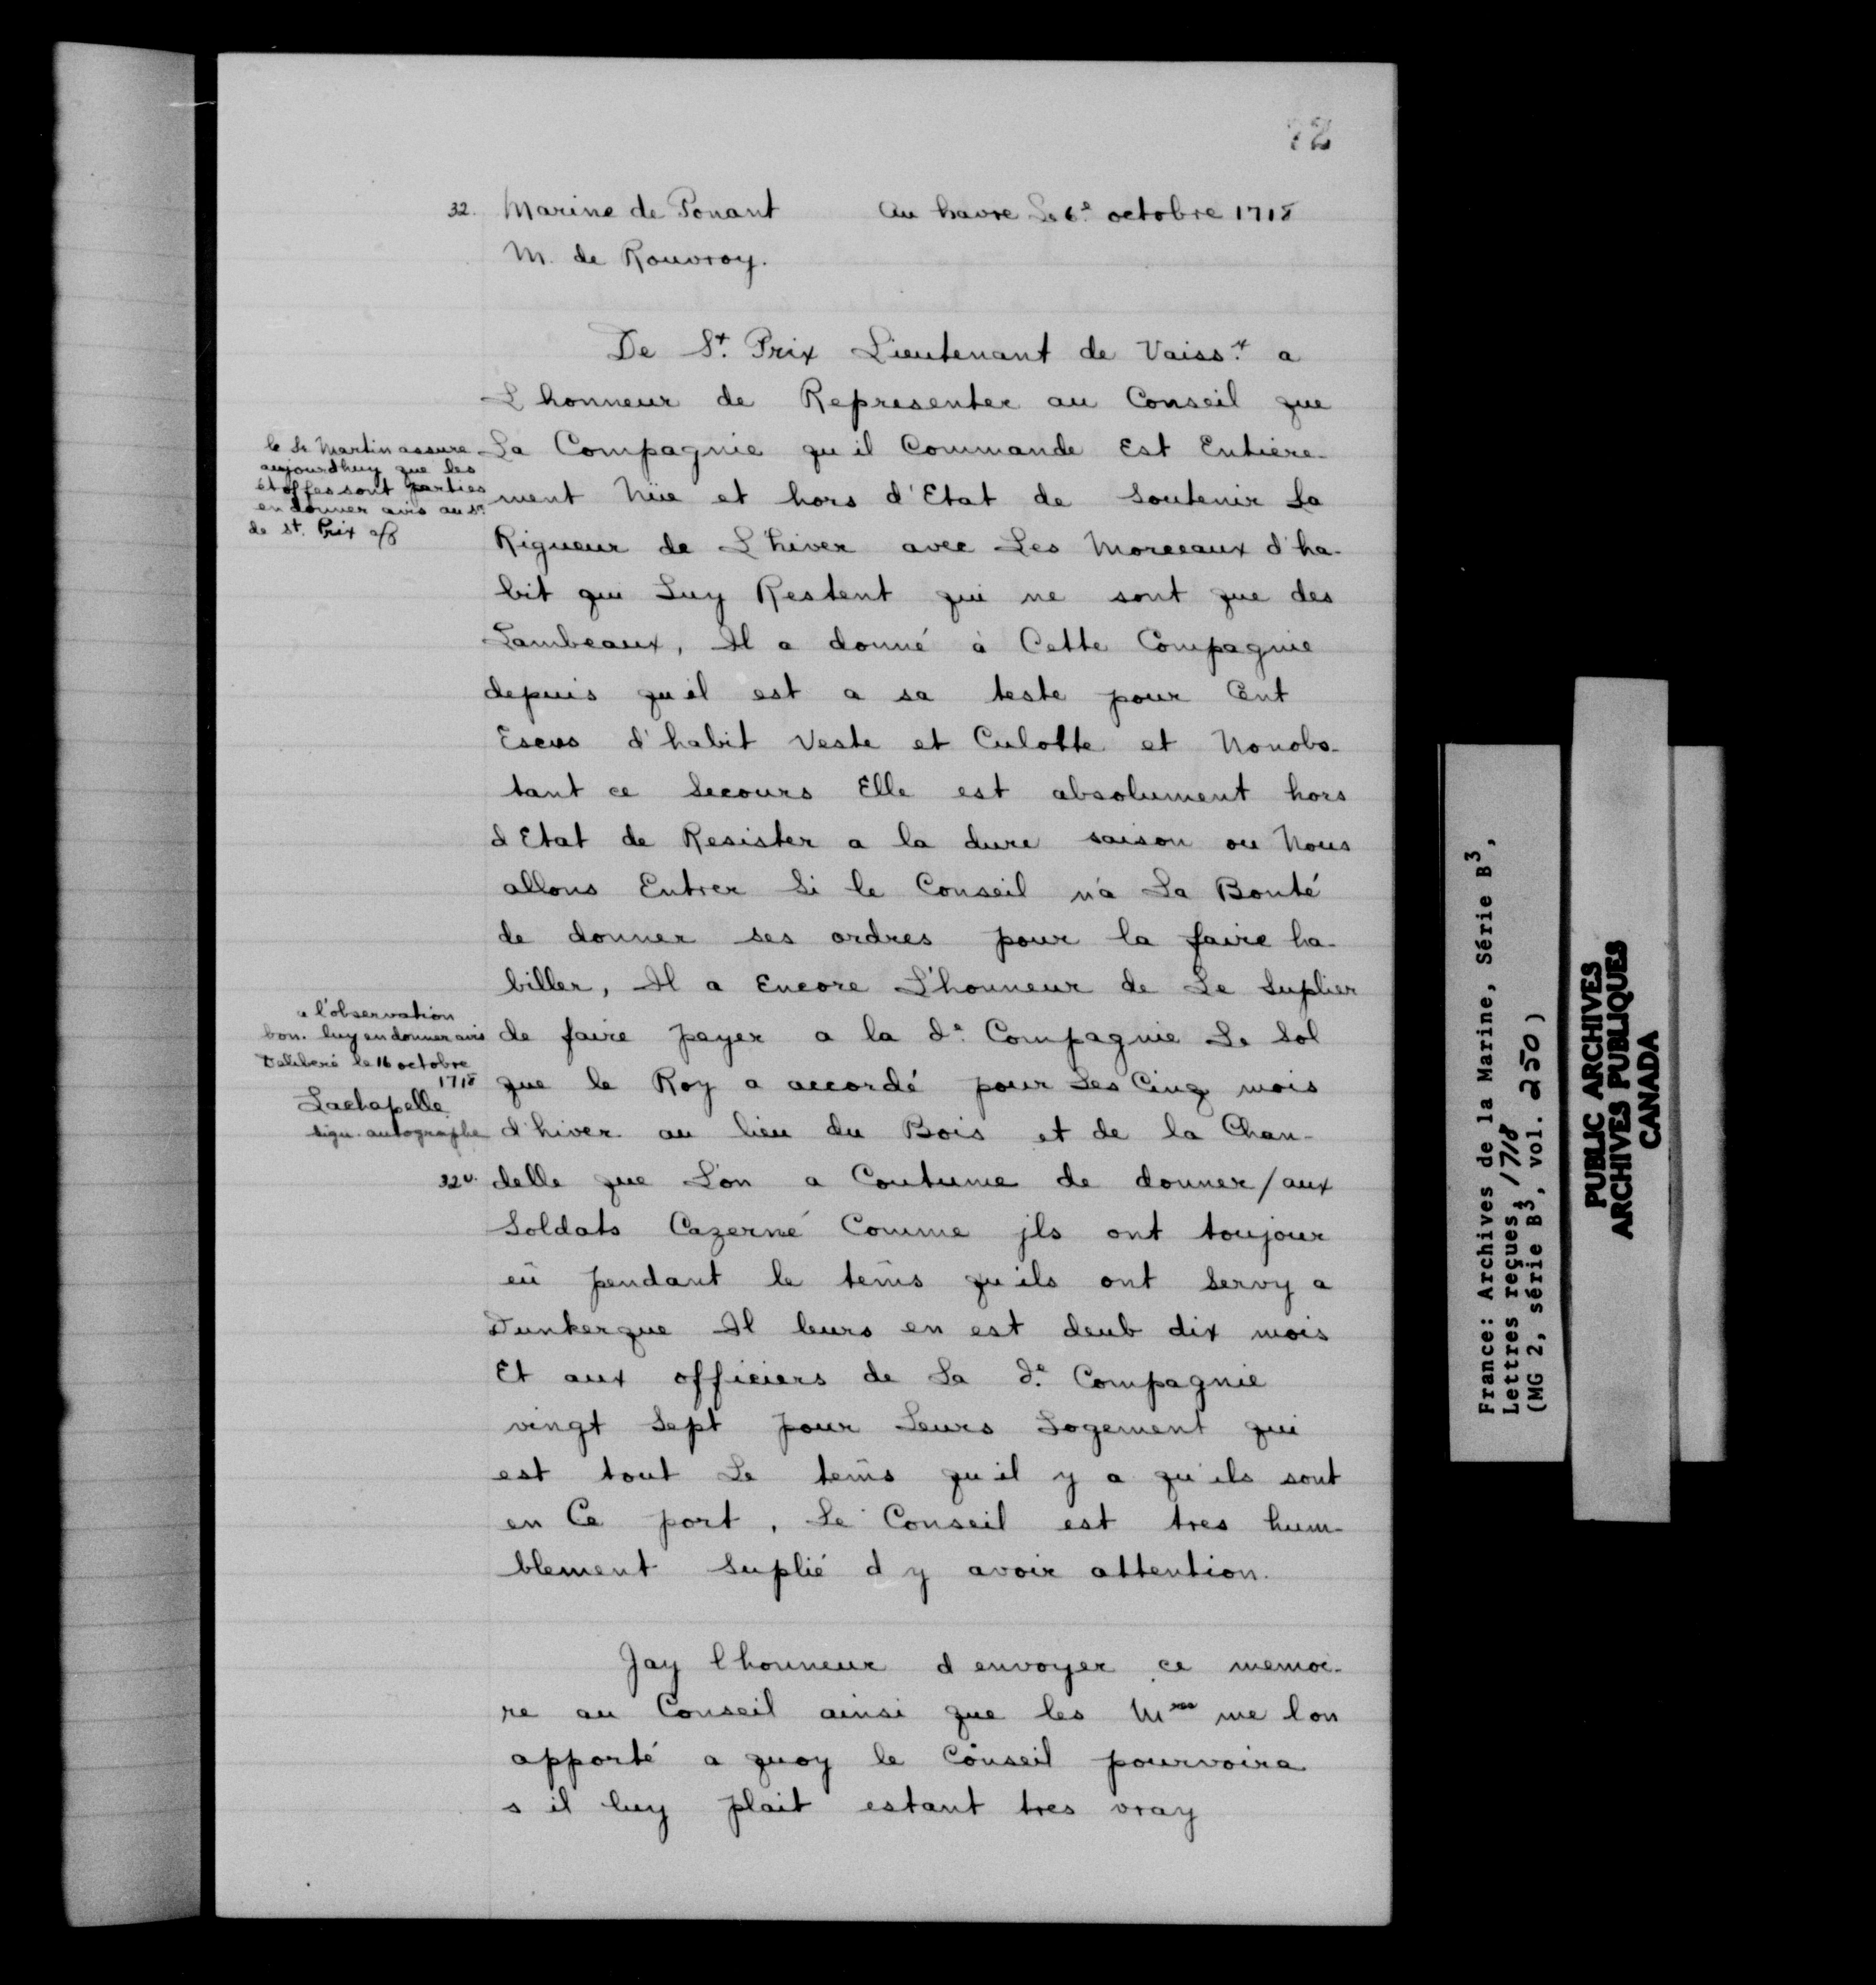 72
32. Marine de Ponant Au havre Le 6e octobre 1718
M. de Rouvroy.
De St. Prix Lieutenant de Vaisst. a
L honneur de Representer au Conseil que
La Compagnie qu il Commande Est Entiere-
ment Nüe et hors d'Etat de Soutenir La
Rigueur de L'hiver avec Les Morceaux d'ha-
bit qui Luy Restent qui ne sont que des
Lambeaux, Il a donné à Cette Compagnie
depuis qu il est a sa teste pour Cent
Escus d'habit Veste et Culotte et Nonobs-
tant ce Secours Elle est absolument hors
d Etat de Resister a la dure saison ou Nous
allons Entrer Si le Conseil n'a La Bonté
de donner ses ordres pour la faire ha-
biller, Il a Encore L'honneur de Le Suplier
de faire payer a la de. Compagnie Le Sol
que le Roy a accordé pour Les Cinq mois
d'hiver au lieu du Bois et de la Chan-
32v. delle que L'on a Coutume de donner/aux
Soldats Cazerné Comme jls ont toujour
eü pendant le tems qu ils ont Servy a
Dunkerque Il leurs en est deub dix mois
Et aux officiers de La de. Compagnie
vingt Sept pour Leurs Logement qui
est tout Le tems qu il y a qu'ils sont
en Ce port, Le Conseil est tres hum-
blement Suplié d y avoir attention.
Jay lhonneur d envoyer ce memoi-
re au Conseil ainsi que les Mrs me lon
apporté a quoy le Conseil pourvoira
s il luy plait estant tres vray
le Sr Martin assure
aujourdhuy que les
étoffes sont parties
en donner avis au Sr
de St. Prix
a l'observation
bon. luy en donner avis
Deliberé le 16 octobre
1718
Lachapelle
sign. autographe
France: Archives de la Marine, Série B3,
Lettres reçues, 1718
(MG 2, série B3, vol. 250)
PUBLIC ARCHIVES
ARCHIVES PUBLIQUES
CANADA